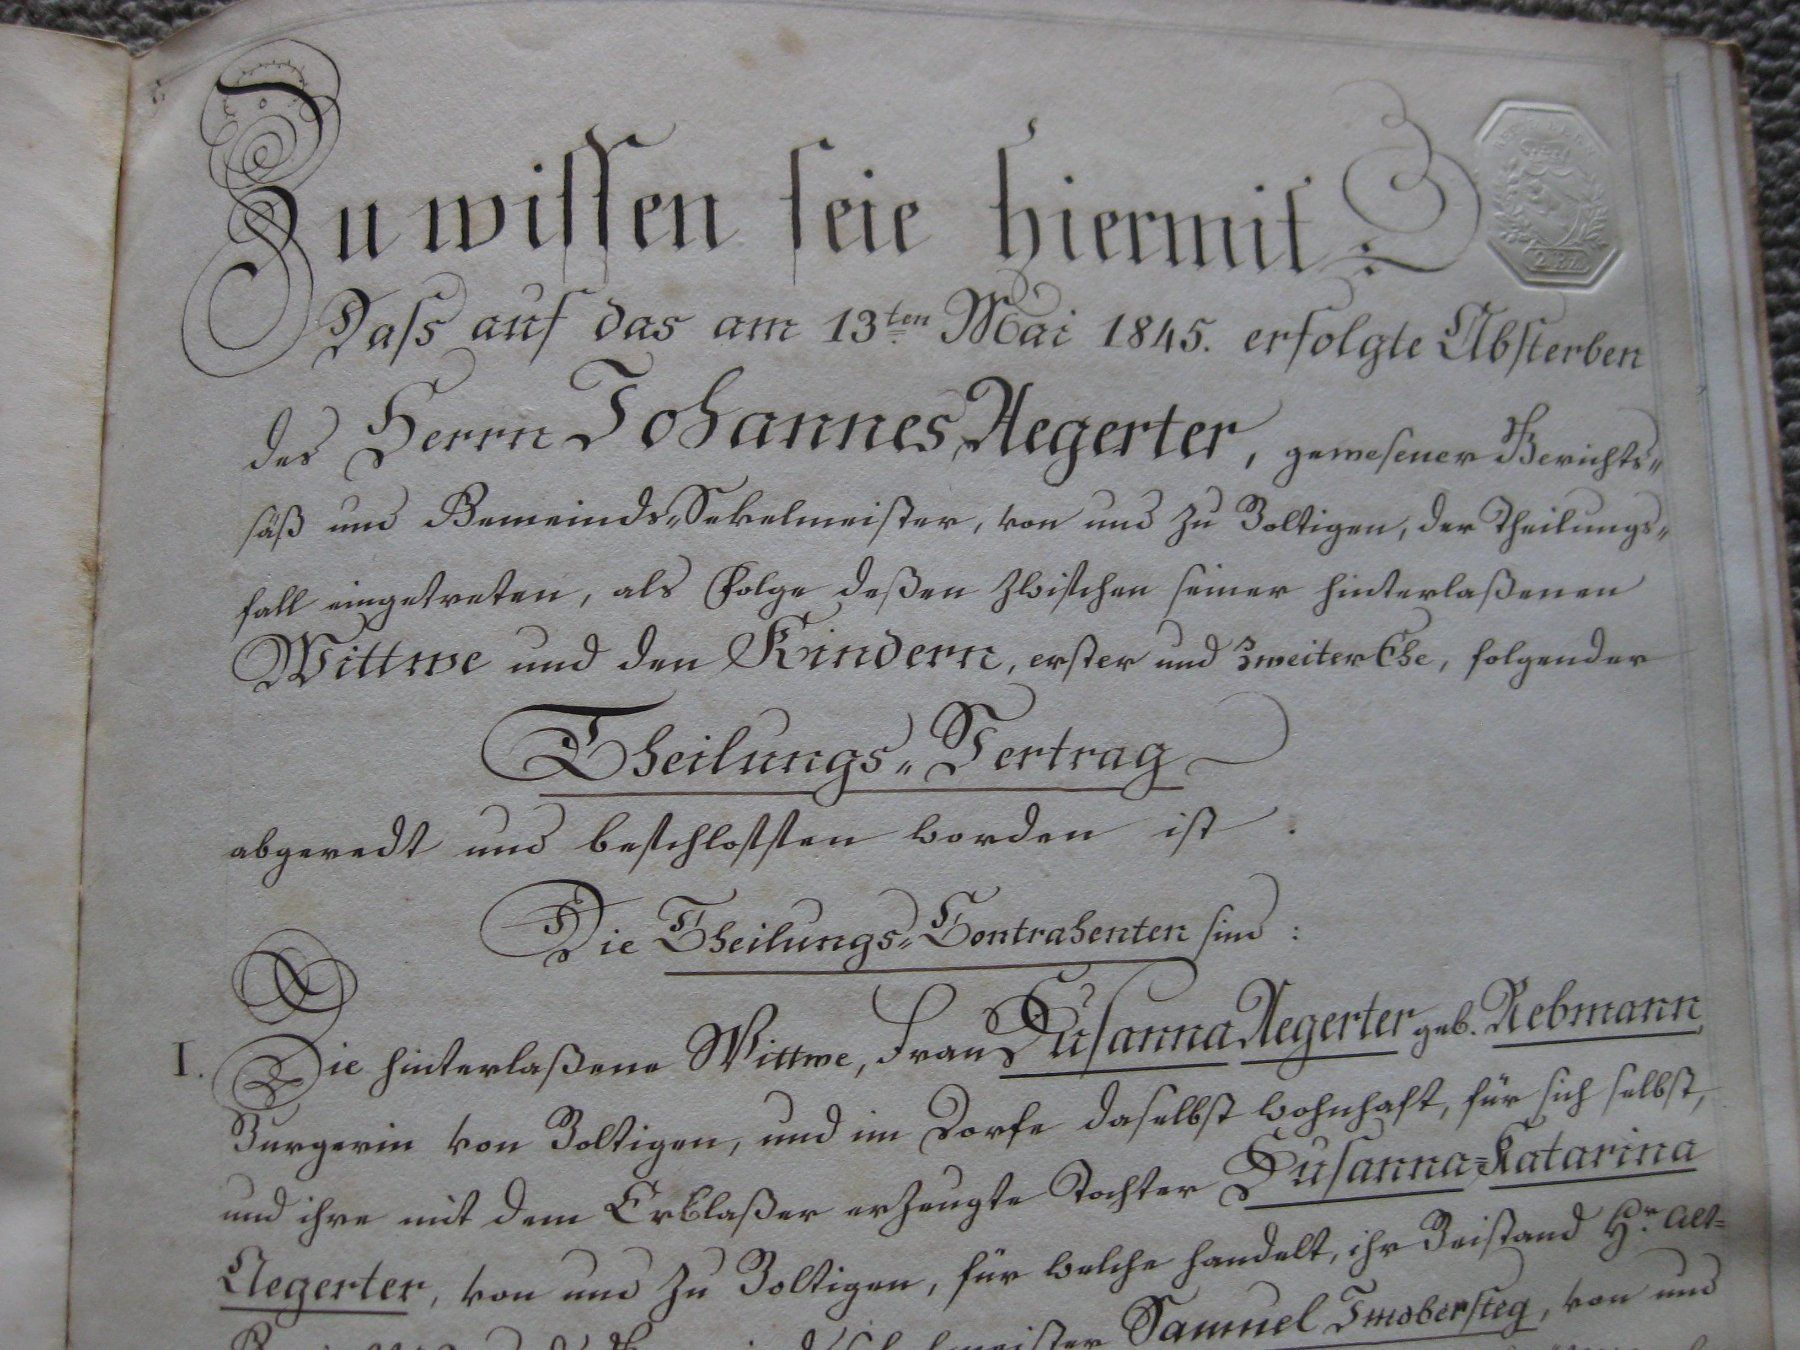 Zu wissen seie hiermit:
2. Bz.
Dass auf das am 13ten Mai 1845. erfolgte Absterben
des Herrn Johannes Aegerter, gewesener Gerichts-
säß und Gemeinds-Sekelmeister, von und zu Boltigen, der Theilungs-
fall eingetreten, als Folge deßen zwischen seiner hinterlaßenen
Wittwe und den Kindern, erster und zweiter Ehe, folgender
Theilungs-Vertrag
abgeredt und beschlossen worden ist.
Die Theilungs-Contrahenten sind:
I. Die hinterlaßene Wittwe, Frau Susanna Aegerter geb. Rebmann,
Burgerin von Boltigen, und im Dorfe daselbst wohnhaft, für sich selbst,
und ihre mit dem Erblaßer erzeugte Tochter Susanna-Katarina
Aegerter, von und zu Boltigen, für welche handelt, ihr Beistand Hr. Alt-
Samuel Imobersteg, von und